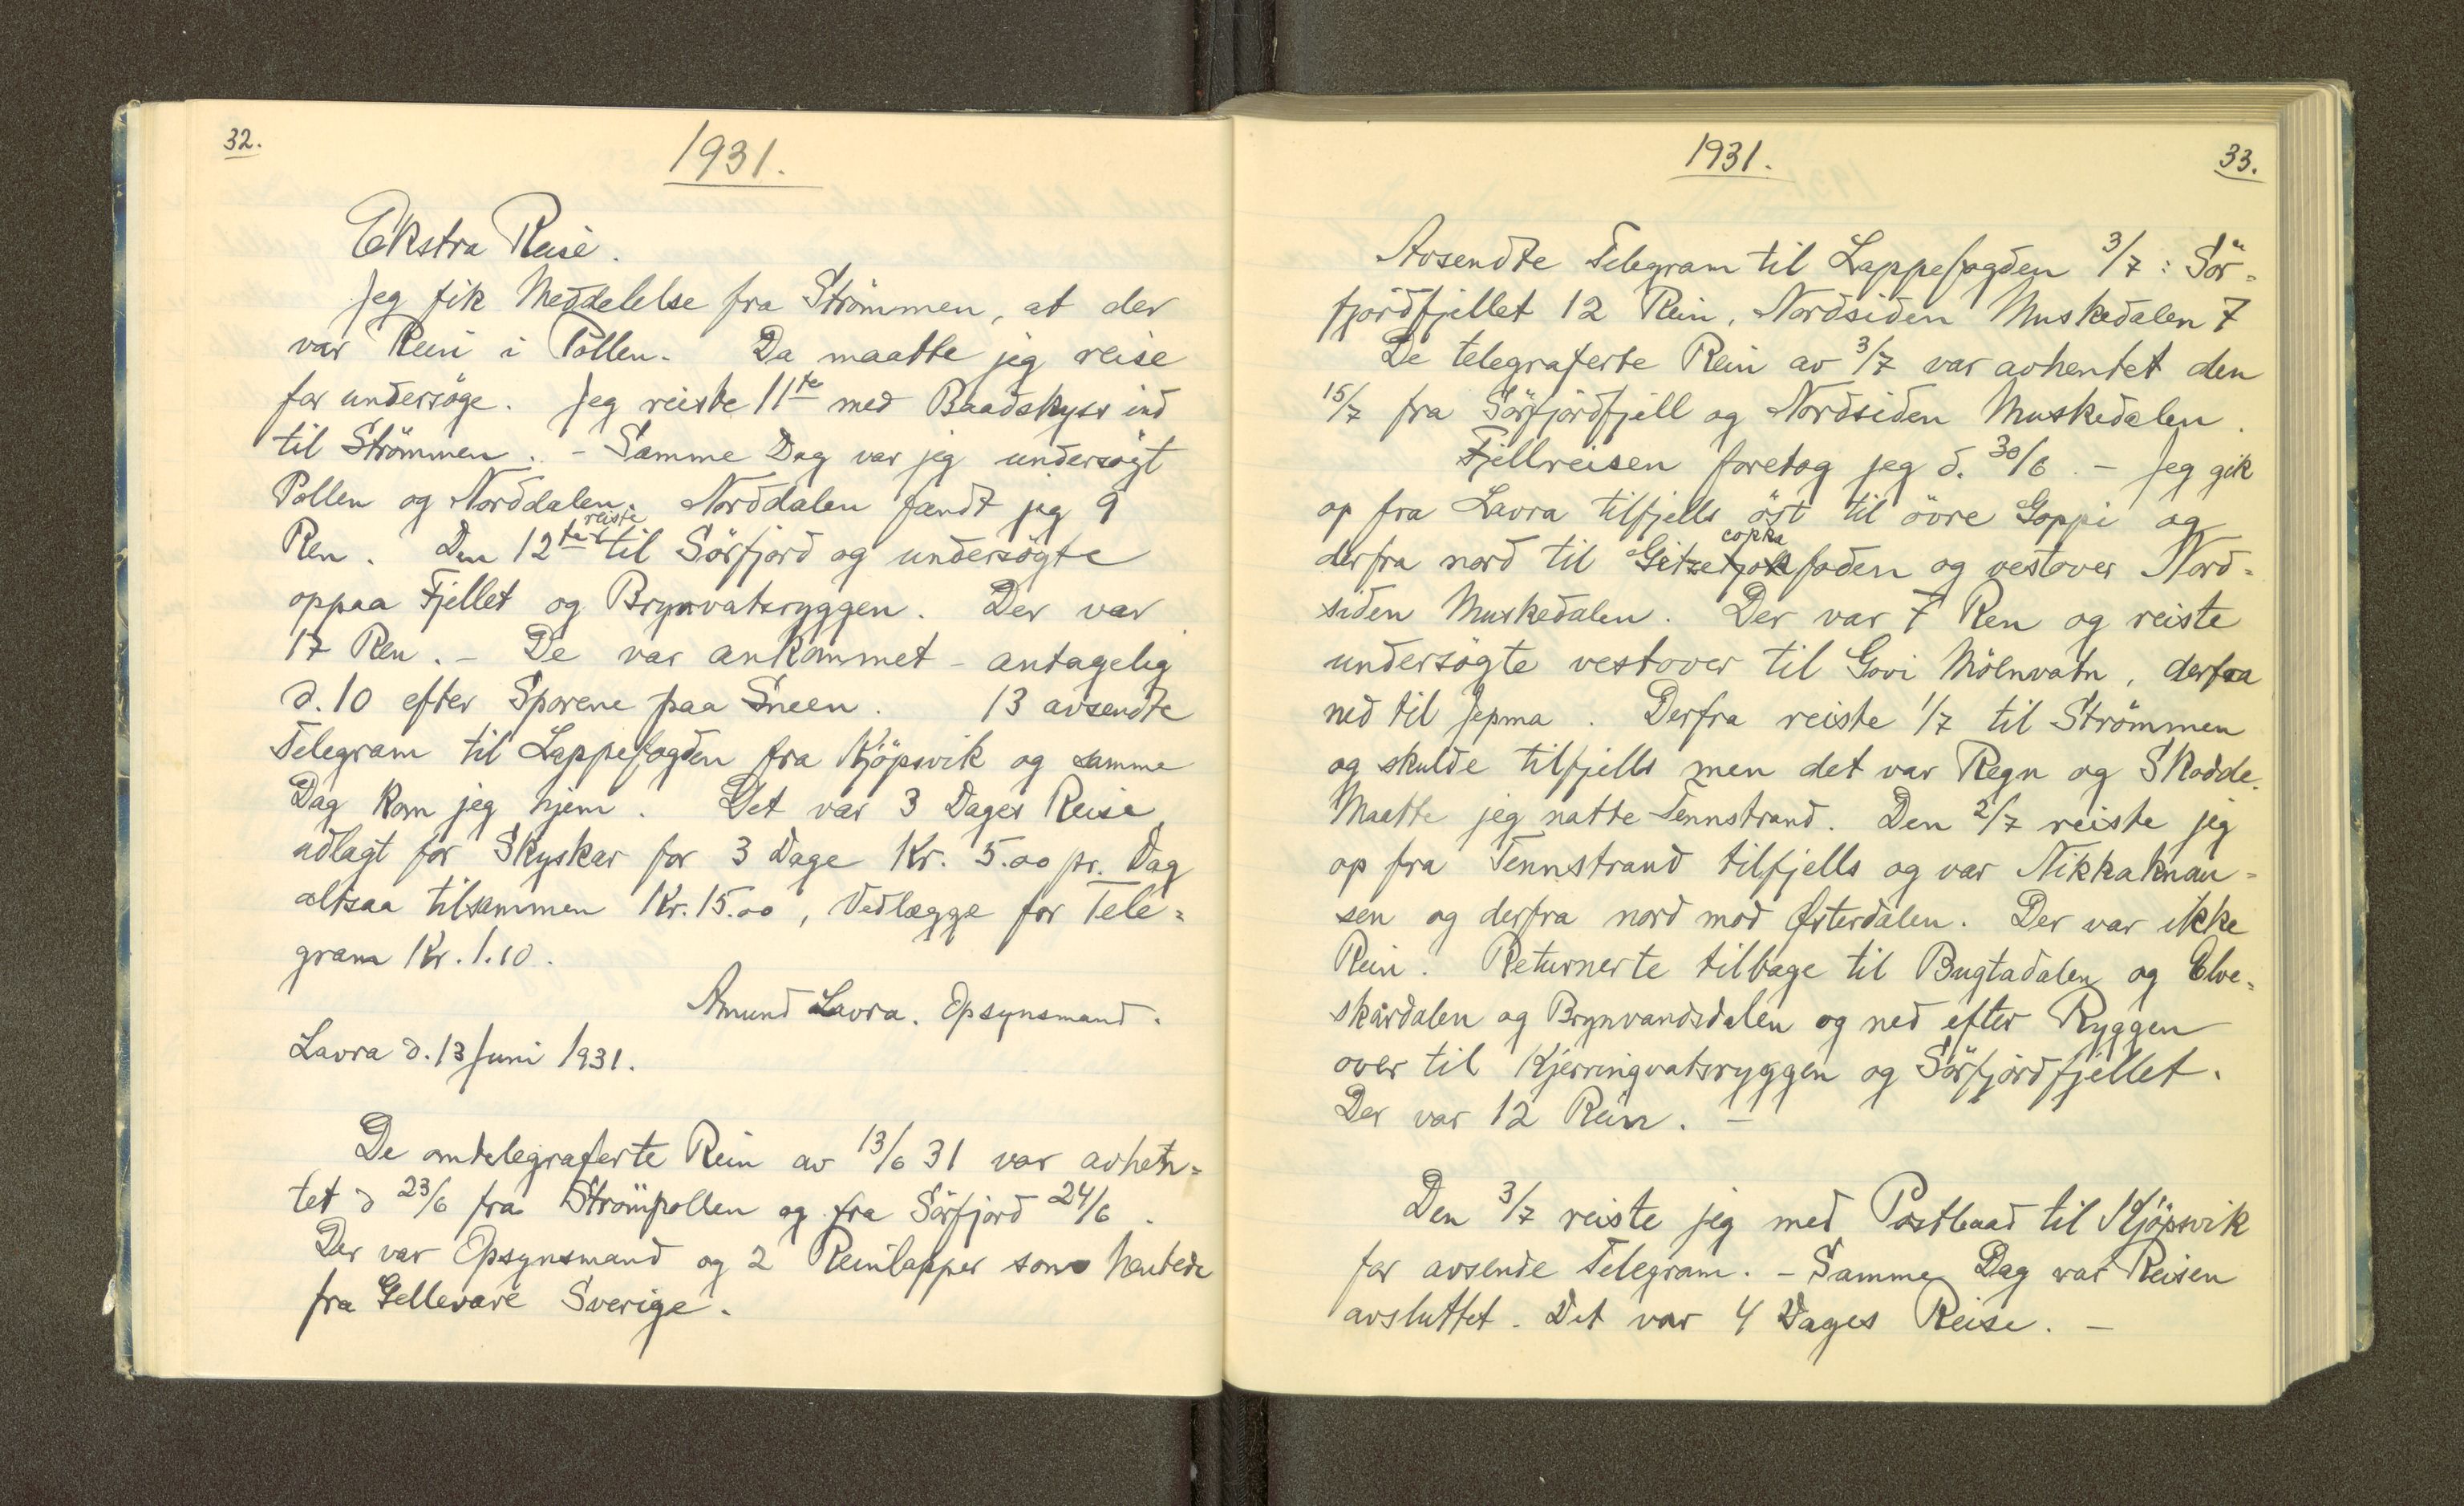 32.
1931.
Ekstra Reise.
Jeg fik Meddelelse fra Strömmen, at der
var Rein i Pollen. Da maatte jeg reise
for undersöge. Jeg reiste 11te med Baadskyss ind
til Strömmen. - Samme Dag var jeg undersögt
Pollen og Norddalen. Norddalen fandt jeg 9
Ren. Den 12te reiste til Sörfjord og undersögte
oppaa Fjellet og Brynvatsryggen. Der var
17 Ren. - De var ankommet - antagelig
d. 10 efter Sporene paa Sneen. 13 avsendte
Telegram til Lappefogden fra Kjöpsvik og samme
Dag kom jeg hjem. Det var 3 Dages Reise
udlagt for Skyskar for 3 Dage Kr. 5.00 pr. Dag
altsaa tilsammen Kr. 15.00, Vedlægge for Tele=
gram Kr. 1.10.
Amund Lavra. Opsynsmand.
Lavra d. 13 Juni 1931.
De omtelegraferte Rein av 13/6 31 var avhen=
tet d 23/6 fra Strömpollen og fra Sörfjord 24/6.
Der var Opsynsmand og 2 Reinlapper som hentede
fra Gellevare Sverige.
1931.
33.
Avsendte Telegram til Lappefogden 3/7: Sör=
fjordfjellet 12 Rein, Nordsiden Muskedalen 7
De telegraferte Rein av 3/7 var avhentet den
15/7 fra Sörfjordfjell og Nordsiden Muskedalen.
Fjellreisen foretog jeg d. 30/6. - Jeg gik
op fra Lavra tilfjells öst til övre Goppi og
derfra nord til Gitzecokkafoden og vestover Nord=
siden Muskedalen. Der var 7 Ren og reiste
undersögte vestover til Govi Mölnvatn, derfra
ned til Jepma. Derfra reiste 1/7 til Strömmen
og skulde tilfjells men det var Regn og Skodde.
Maatte jeg natte Tennstrand. Den 2/7 reiste jeg
op fra Tennstrand tilfjells og var Nikkaknau=
sen og derfra nord mod Østerdalen. Der var ikke
Rein. Returnerte tilbage til Bugtadalen og Elve=
skardalen og Brynvandsdalen og ned efter Ryggen
over til Kjerringvatsryggen og Sörfjordfjellet.
Der var 12 Rein. -
Den 3/7 reiste jeg med Postbaad til Kjöpsvik
for avsende Telegram. - Samme Dag var Reisen
avsluttet. Det var 4 Dages Reise. -